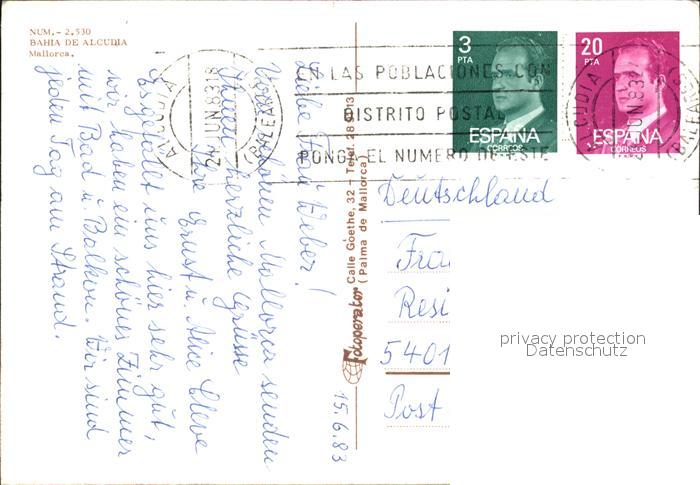 NUM. - 2.530
BAHIA DE ALCUDIA
Mallorca.
Liebe Frau Weber!
Vom schönen Mallorca senden
Ihnen herzliche Grüsse
Ihre Ernst u. Alice
Es gefällt uns hier sehr gut,
wir haben ein schönes Zimmer
mit Bad u. Balkon. Wir sind
jeden Tag am Strand.
15.6.83
Fotoperator Calle Goethe, 32 - Telef.
(Palma de Mallorca)
3
PTA
ESPAÑA
CORREOS
20
PTA
ESPAÑA
CORREOS
EN LAS POBLACIONES CON
DISTRITO POSTAL
PONGA EL NUMERO DE ESTE
ALCUDIA
JUN 83
(BALEARES)
Deutschland
Frau
Resi
5401
Post
privacy protection
Datenschutz